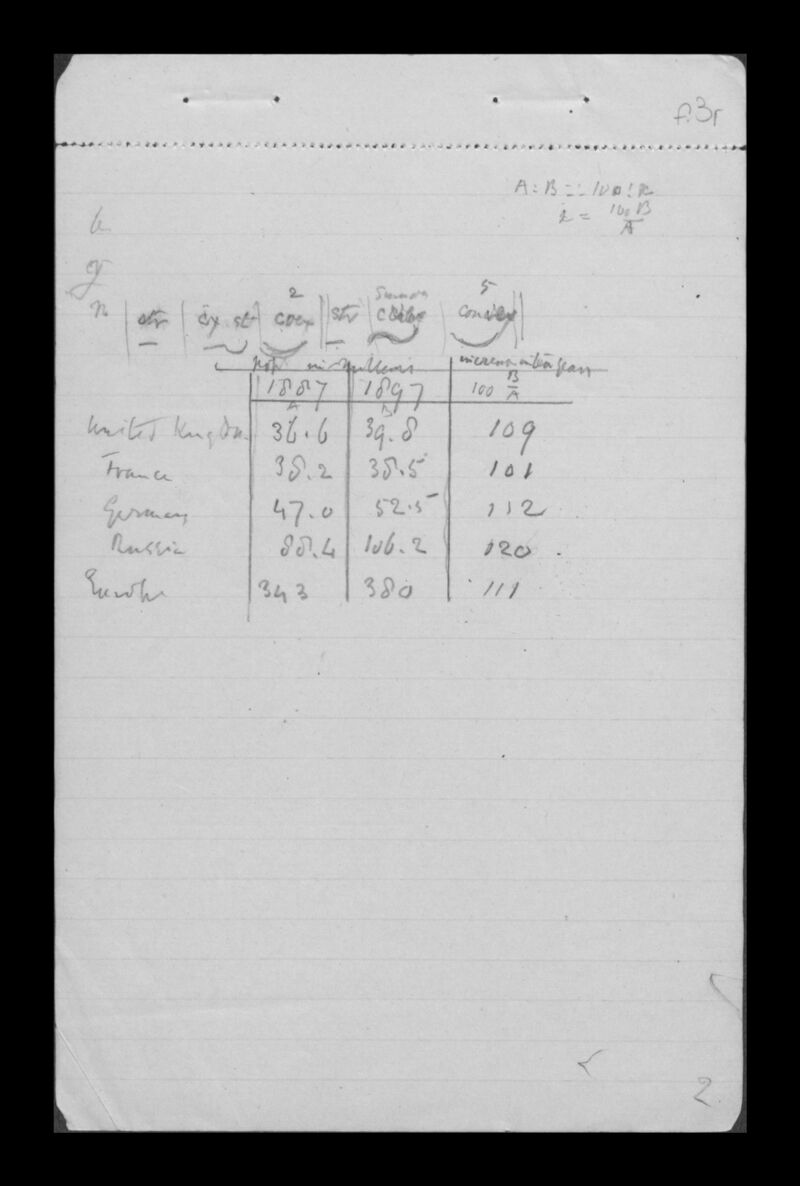 f.3r
A : B = : 100 : x
x = 100 B / A
2 5
str cx st coex str convex
pop in millions increase in ten years
1887 1897 100 B/A
A B
United Kingdom 36.6 39.8 109
France 38.2 38.5 101
Germany 47.0 52.5 112
Russia 88.4 106.2 120
Europe 343 380 111
2